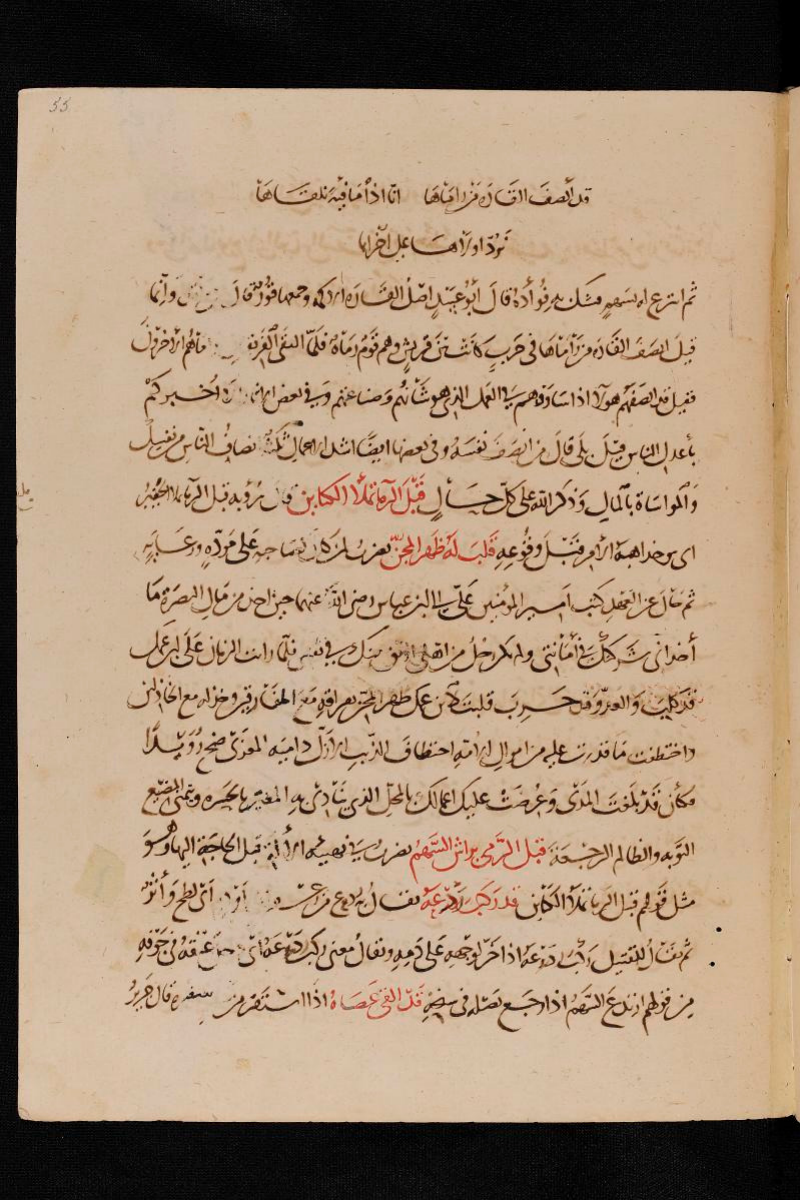 55
قد أنصف القارة من راماها انا اذا ما فية نلقاها
نرد اولاها على اخراها
ثم انتزع له بسهم فشك به فؤاده قال أبو عبيد اصل القارة الاكمة وجمعها قور قال وانما
قيل انصف القارة من راماها في حرب كانت بين قريش وهم قوم رماة فلما التقى الفريقان راماهم الاخرون
فقيل قد انصفهم هولاء اذا ساووهم في العمل الذي هو شأنهم وصناعتهم وفي بعض الاثار الا اخبركم
بأعدل الناس قيل بلى قال من انصف نفسه وفي بعضها ايضا اشد الاعمال ثلثة انصاف الناس من نفسك
والمواساة بالمال وذكر الله على كل حال قبل الرماء تملأ الكنائن قال رؤبة قبل الرماء يملا الجفير
اي يوخذ اهبة الامر قبل وقوعه قلب له ظهر المجن يضرب لمن كان لصاحبه على مودة ورعاية
ثم حال عن العهد كتب امير المؤمنين علي الى ابن عباس رضى الله عنهما حين اخذ من مال البصرة ما
أخذ انى شركتك في أمانتى ولم يكن رجل من اهلى اوثق منك في نفسي فلما رايت الزمان على ابن عمك
قد كلب والعدو قد حرب قلبت لابن عمك ظهر المجن بفراقه مع المفارقين وخذله مع الخاذلين
واختطفت ما قدرت عليه من اموال الامة اختطاف الذيب الازل دامية المعزى ضح رويدا
فكأن قد بلغت المدى وعرضت عليك اعمالك بالمحل الذي ينادى به المغتر بالحسرة ويتمنى المضيع
التوبة والظالم الرجعة قبل الرمى يراش السهم يضرب في تهيئة الالة قبل الحاجة اليها وهو
مثل قولهم قبل الرماء تملأ الكنائن قد ركب ردعه يقال به ردع من اي لطخ وأثر
ثم يقال للقتيل ركب ردعه اذا خر لوجهه على دمه ويقال معنى ركب ردعه اى دخل عنقه في جوفه
من قولهم ارتدع السهم اذا رجع نصله في سنخه قد القى عصاه اذا استقر من سفره قال جرير